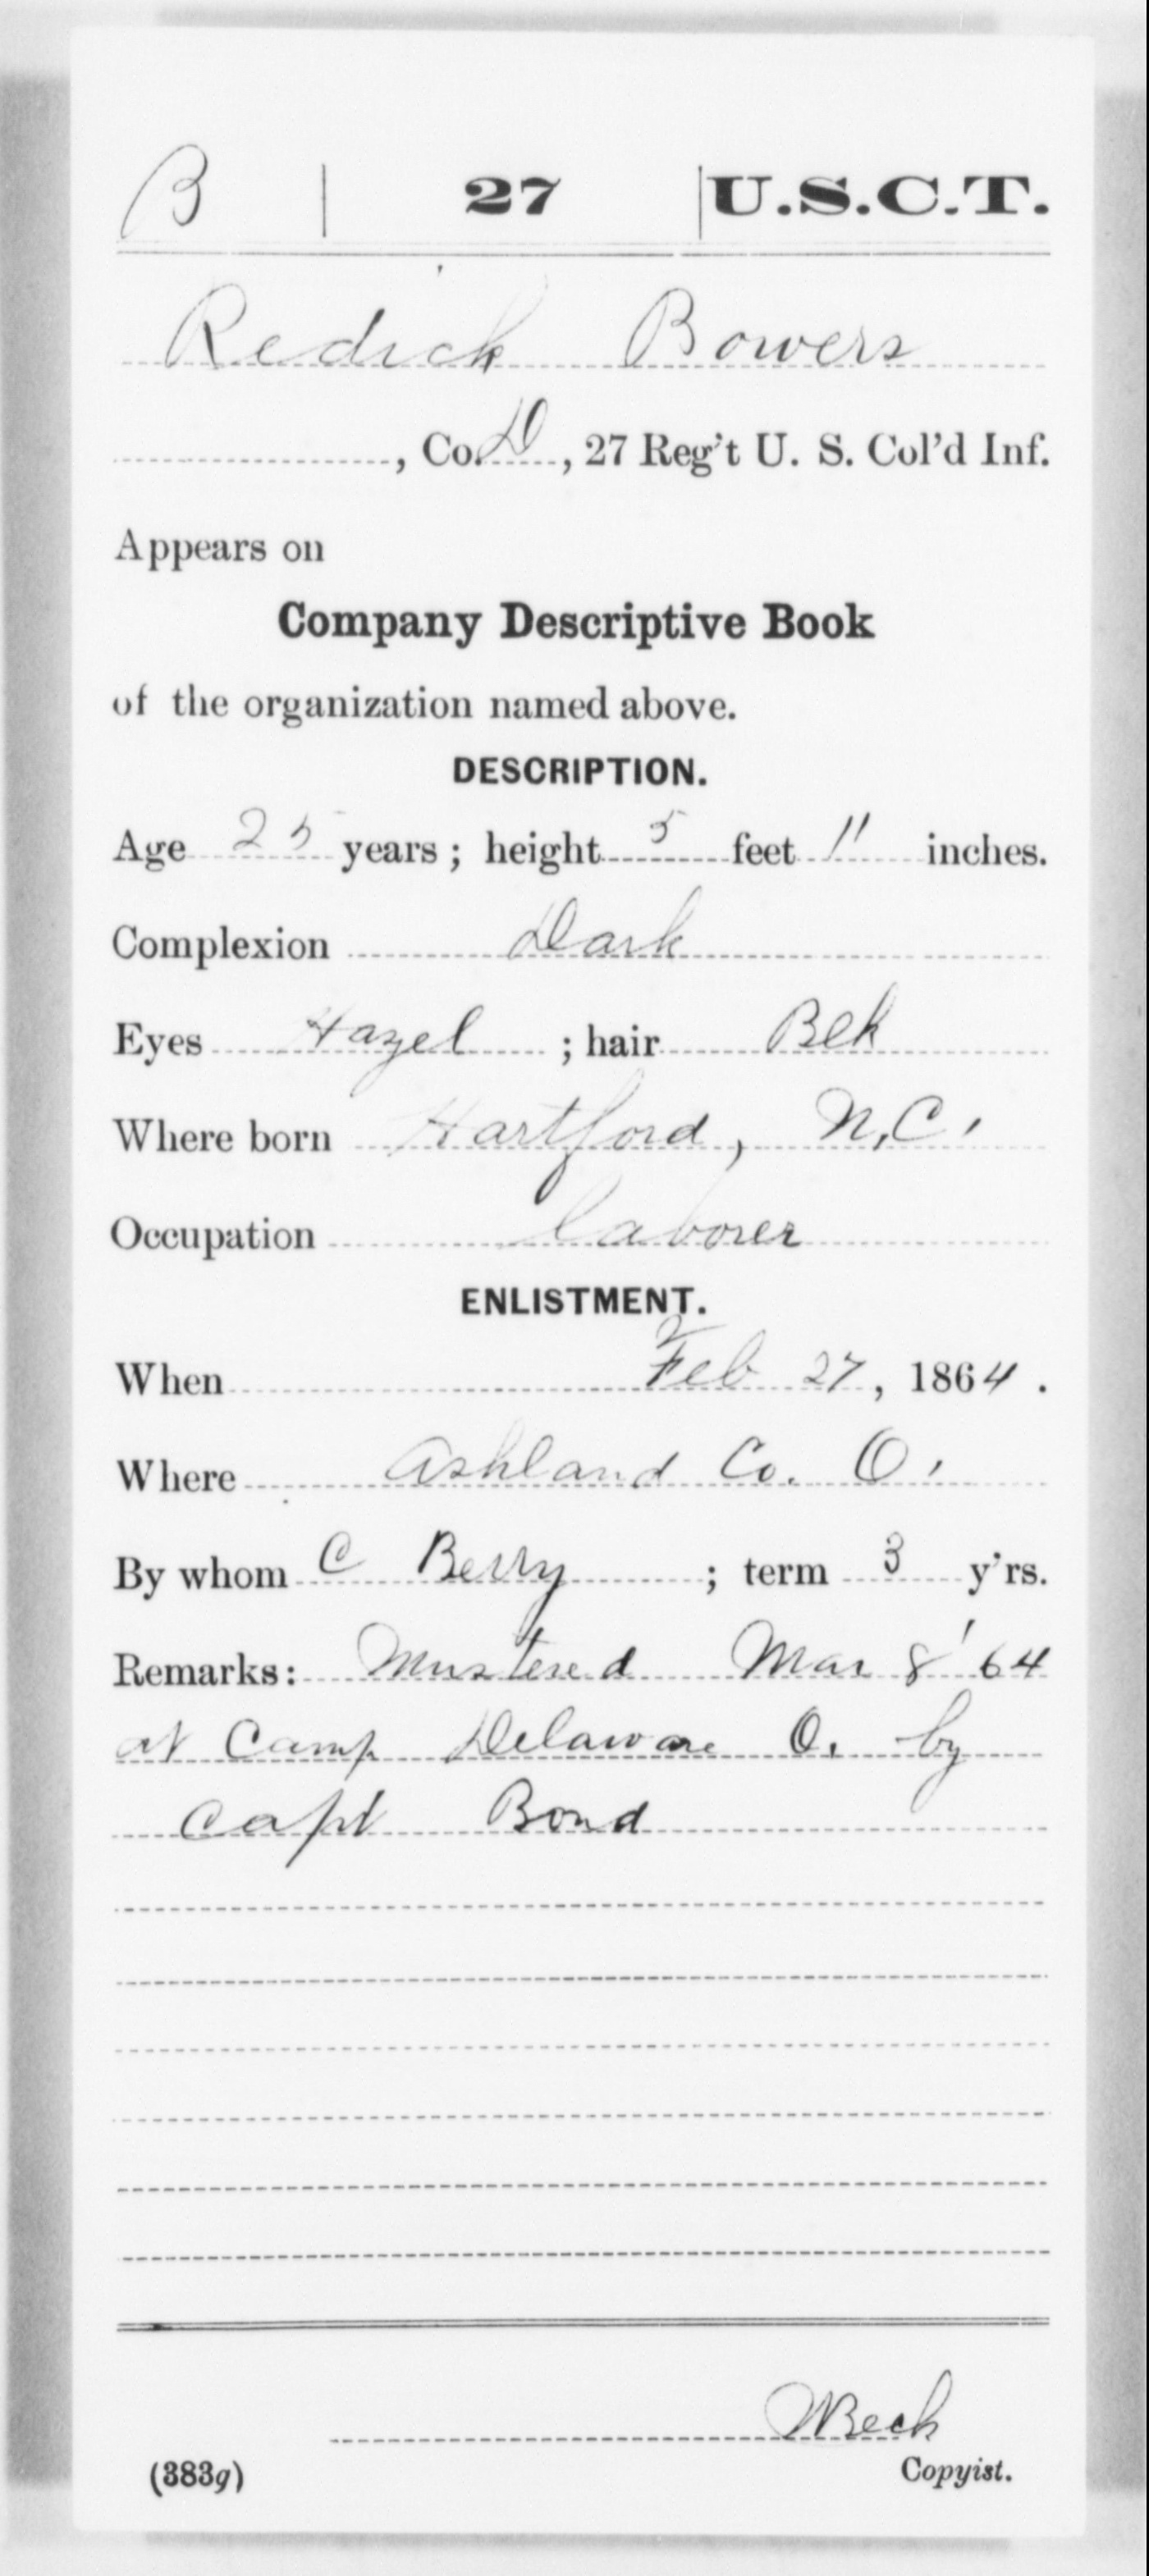 B | 27 | U.S.C.T.
Redick Bowers
, Co. D, 27 Reg't U. S. Col'd Inf.
Appears on
Company Descriptive Book
of the organization named above.
DESCRIPTION.
Age 25 years; height 5 feet 11 inches.
Complexion Dark
Eyes Hazel; hair Blk
Where born Hartford, N.C.
Occupation laborer
ENLISTMENT.
When Feb 27, 1864.
Where Ashland Co. O.
By whom C Berry; term 3 y'rs.
Remarks: Mustered Mar 8 '64
at Camp Delaware O. by
Capt Bond
WBeck
(383g) Copyist.